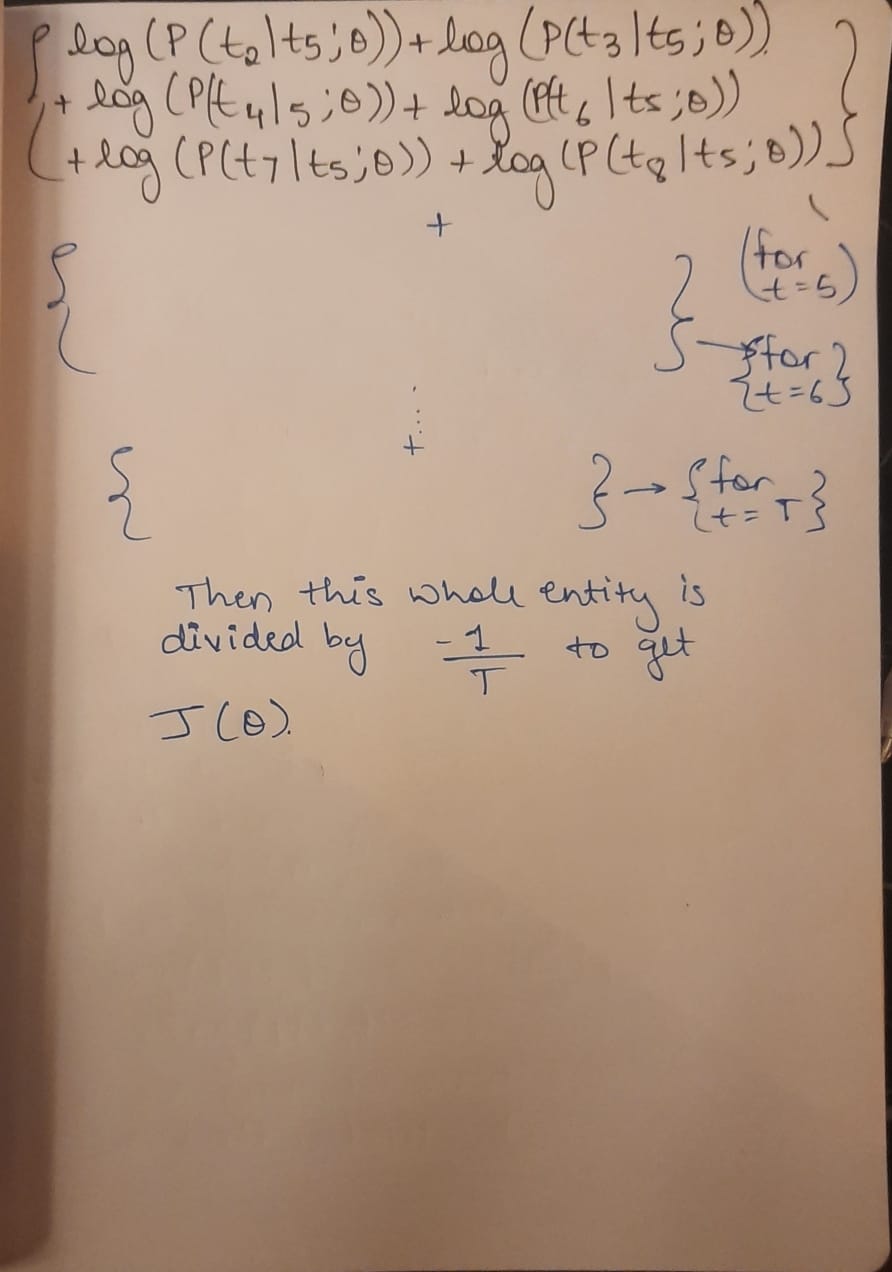 { log(P(t₂|t₅;θ))+log(P(t₃|t₅;θ))
+ log(P(t₄|₅;θ))+ log(P(t₆|t₅;θ))
+log(P(t₇|t₅;θ)) + log(P(t₈|t₅;θ)) }
+
(for t=5)
{ } → {for t=6}
⋮
+
{ } → {for t=T}
Then this whole entity is
divided by -1/T to get
J(θ).